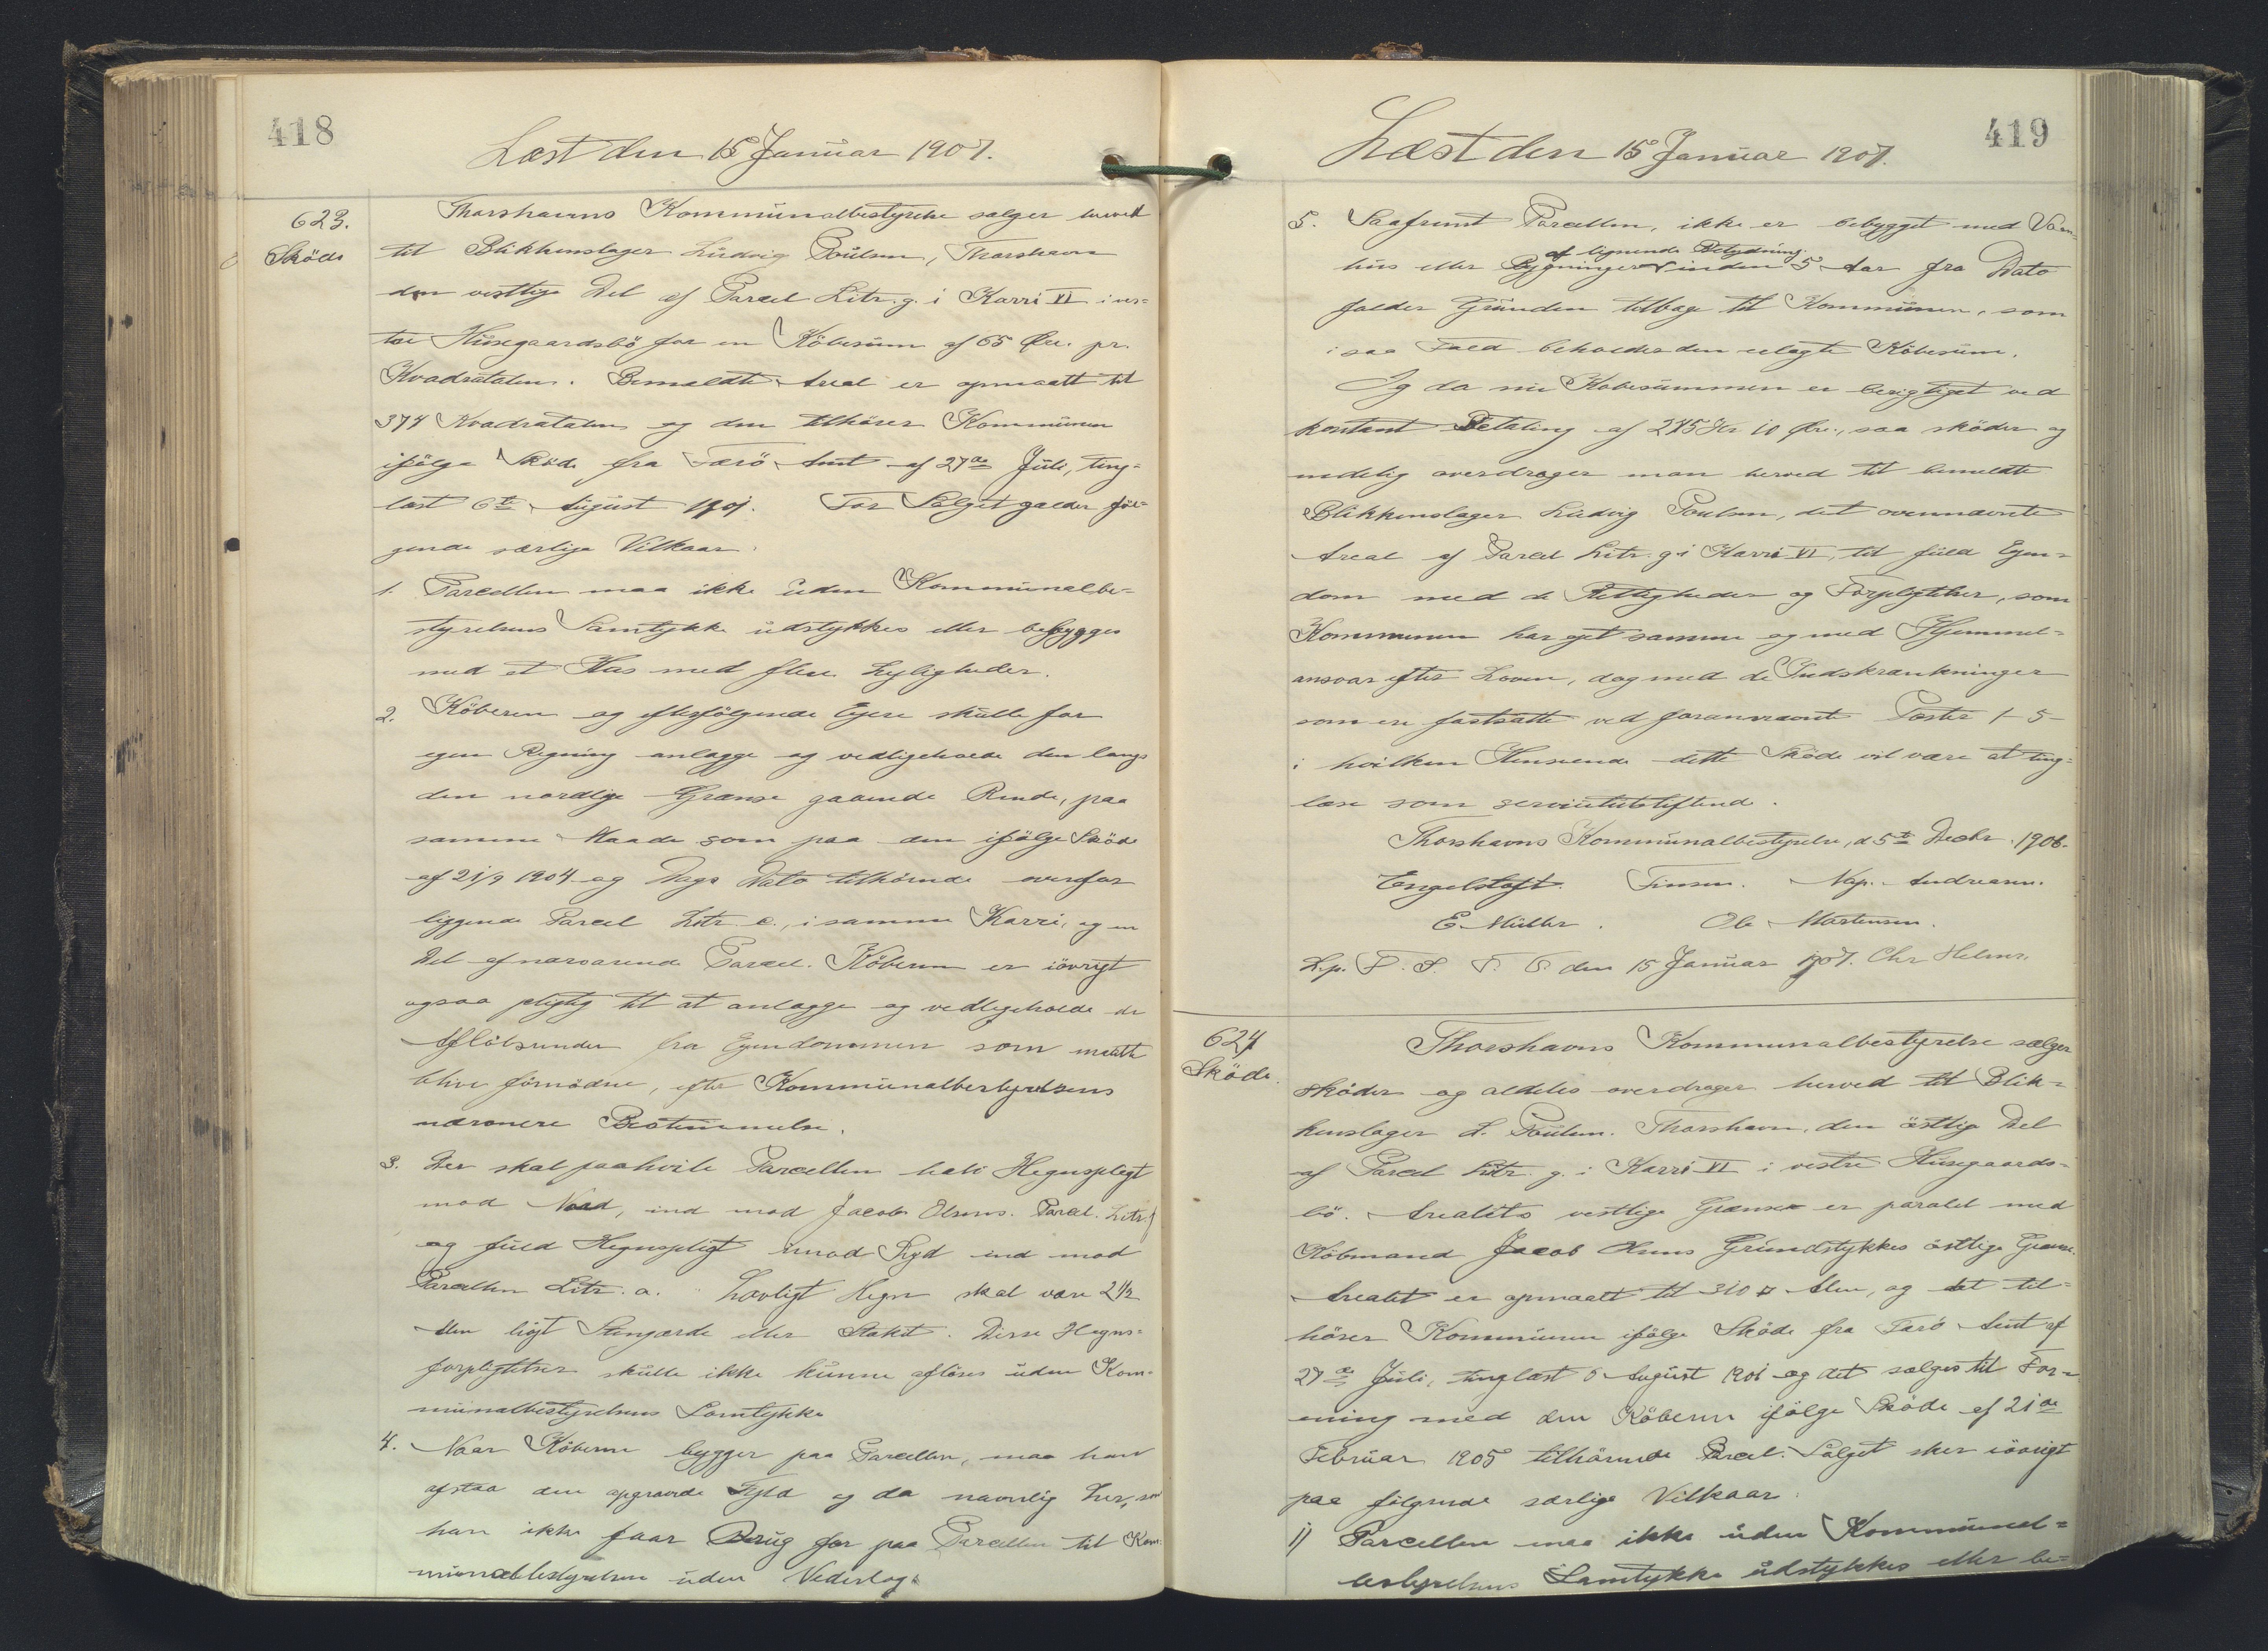 418
Læst den 15 Januar 1907.
623.
Sköde
Thorshavns Kommunalbestyrelse sælger herved
til Blikkenslager Ludvig Poulsen, Thorshavn
den vestlige Del af Parcel Litr. g. i Karri VI i ves-
tre Húsegaardsbö for en Köbesum af 65 Øre. pr.
Kvadratalen. Bemeldte Areal er opmaalt til
374 Kvadratalen og den tilhörer Kommunen
ifölge Sköde fra Færö Amt af 27de Juli, ting-
læst 6te August 1901. For Salget gælder föl-
gende særlige Vilkaar.
1. Parcellen maa ikke uden Kommunalbe-
styrelsens Samtykke udstykkes eller bebygges
med et Hus med flere Lejligheder.
2. Köberen og efterfölgende Ejere skulle for
egen Regning anlægge og vedligeholde den langs
den nordlige Grænse gaaende Rende, paa
samme Maade som paa den ifölge Sköde
af 21/9 1904 og Dags Dato tilhörende overfor
liggende Parcel Litr. c., i samme Karri, og en
Del af nærværende Parcel. Köberen er iövrigt
ogsaa pligtig til at anlægge og vedligeholde de
Aflöbsrender fra Ejendommen som maatte
blive fornödne, efter Kommunalbestyrelsens
nærmere Bestemmelse.
3. Der skal paahvile Parcellen halv Hegnspligt
mod Nord, ind mod Jacob Olsens. Parcel. Litr. f
og fuld Hegnspligt imod Syd ind mod
Parcellen Litr. a. Lovligt Hegn skal være 2 1/2
Alen högt Stengærde eller Stakit. Disse Hegns-
forpligtelser skulle ikke kunne aflöses uden Kom-
munalbestyrelsens Samtykke
4. Naar Köberen bygger paa Parcellen, maa han
afstaa den opgravede Fyld og da navnlig Ler, som
han ikke faar Brug for paa Parcellen til Kom-
munalbestyrelsen uden Vederlag.
419
Læst den 15 Januar 1907.
5. Saafremt Parcellen, ikke er bebygget med Vaan-
af lignende Betydning
hus eller Bygninger inden 5 Aar fra Dato
falder Grunden tilbage til Kommunen, som
i saa Fald beholder den erlagte Köbesum.
Og da nu Köbesummen er berigtiget ved
kontant Betaling af 245 Kr 10 Øre., saa sköder og
endelig overdrager man herved til bemeldte
Blikkenslager Ludvig Poulsen, det ovennævnte
Areal af Parcel Litr. g i Karri VI, til fuld Ejen-
dom med de Rettigheder og Forpligtelser, som
Kommunen har ejet samme og med Hjemmel-
ansvar efter Loven, dog med de Indskrænkninger
som ere fastsatte ved forannævnte Poster 1-5-
i hvilken Henseende dette Sköde vil være at ting-
læse som servitutstiftende.
Thorshavns Kommunalbestyrelse, d 5te Decbr. 1906.
Engelstoft. Finsen. Nap. Andreasen.
E. Müller. Ole Mortensen.
L.p. F. S. T. O. den 15 Januar 1907. Chr Helms.
624
Sköde.
Thorshavns Kommunalbestyrelse sælger
sköder og aldeles overdrager herved til Blik-
kenslager L. Poulsen. Thorshavn, den östlige Del
af Parcel Litr. g. i Karri VI i vestre Húsegaards-
bö. Arealets vestlige Grænse er paralel med
Köbmand Jacob Olsens Grundstykkes östlige Grænse.
Arealet er opmaalt til 310 □ Alen, og det til-
hörer Kommunen ifölge Sköde fra Færö Amt af
27de Juli, tinglæst 6 August 1901 og det sælges til For-
ening med den Köberen ifölge Sköde af 21de
Februar 1905 tilhörende Parcel. Salget sker iövrigt
paa fölgende særlige Vilkaar.
1) Parcellen maa ikke uden Kommunal-
bestyrelsens Samtykke udstykkes eller be-